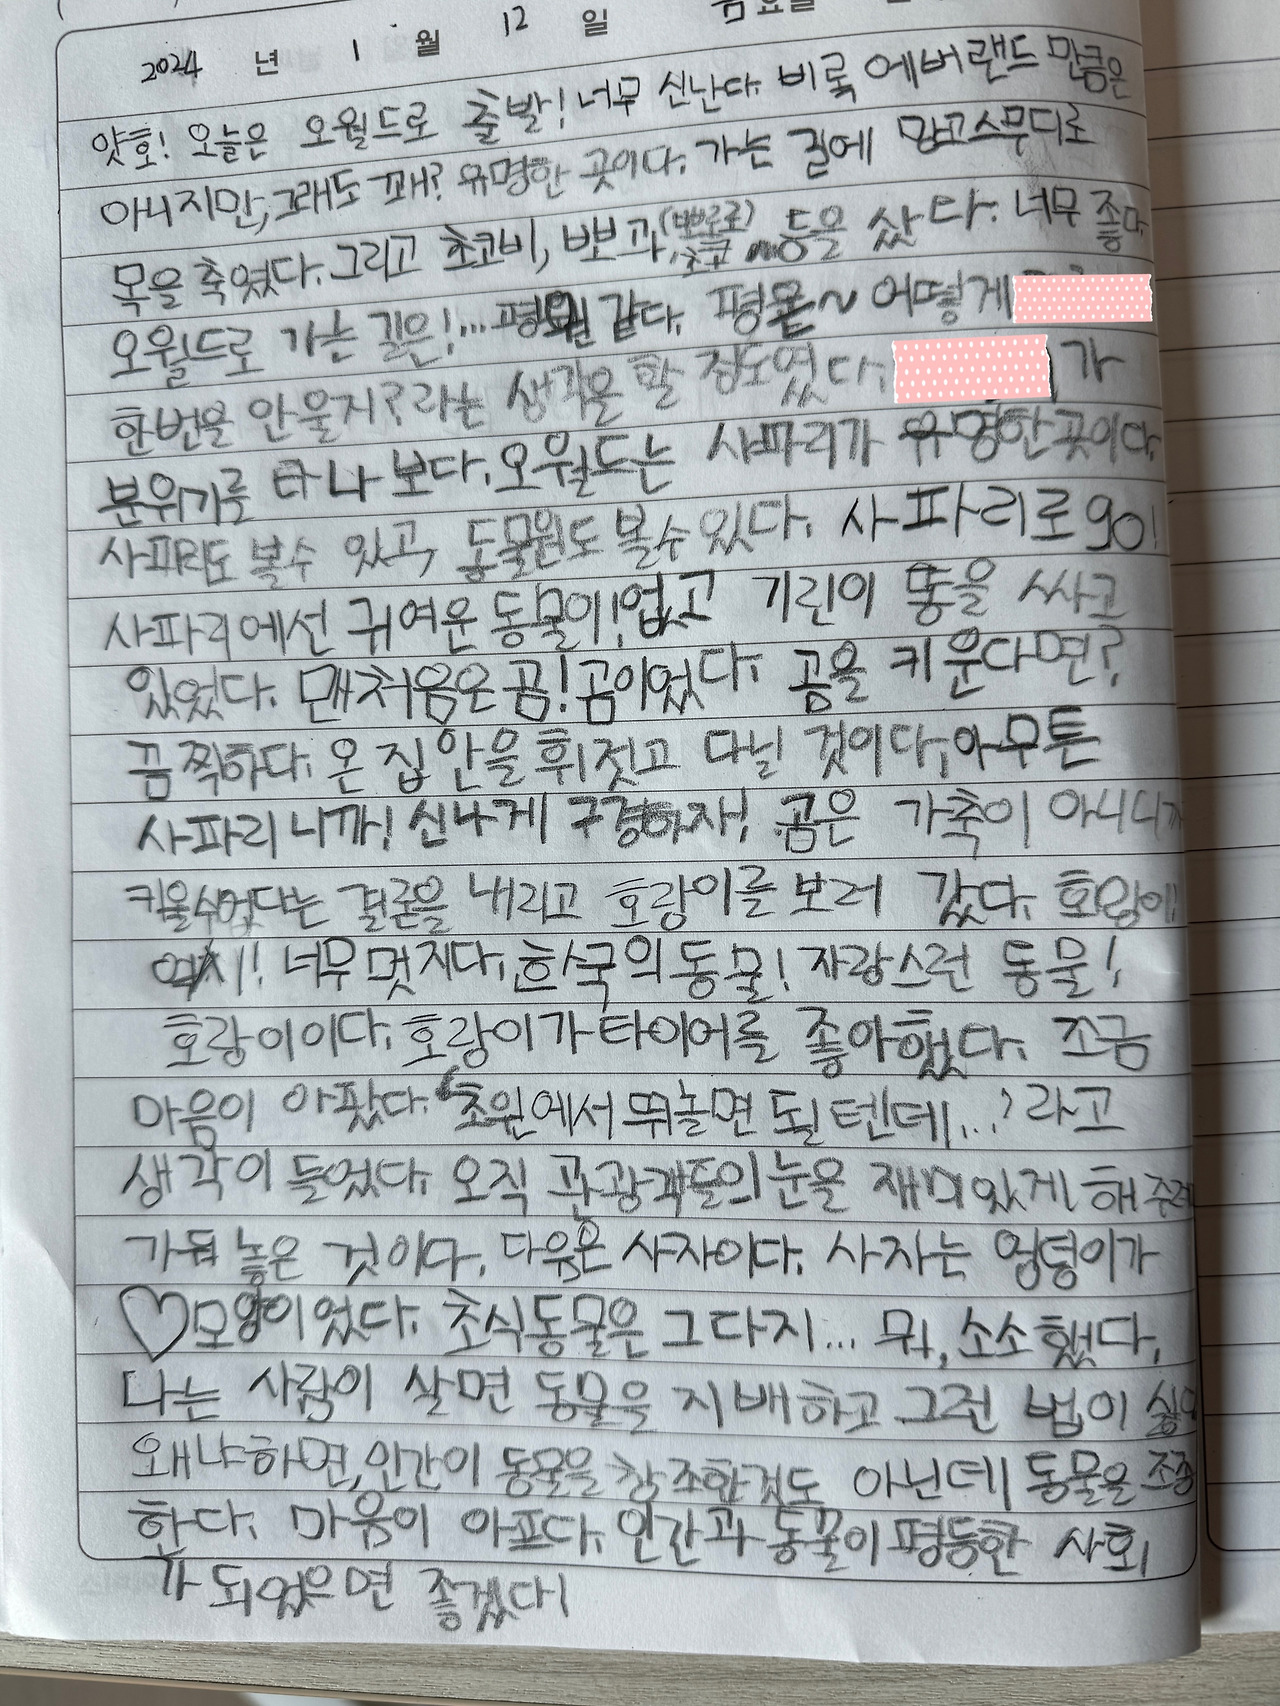 2024 년 1 월 12 일
얏호! 오늘은 오월드로 출발! 너무 신난다. 비록 에버랜드 만큼은
아니지만, 그래도 꽤? 유명한 곳이다. 가는 길에 망고스무디로
목을 축였다. 그리고 초코비, 뽀과, (뽀로로) 초코 등을 샀다. 너무 좋다.
오월드로 가는 길은!... 평온 같다. 평온~ 어떻게
한번을 안울지? 라는 생각을 할 정도였다. 가
분위기를 타나 보다. 오월드는 사파리가 유명한 곳이다.
사파리도 볼수 있고, 동물원도 볼수있다. 사파리로 go!
사파리에선 귀여운 동물이! 없고 기린이 똥을 싸고
있었다. 맨처음은 곰! 곰이었다. 곰을 키운다면?
끔찍하다. 온 집 안을 휘젓고 다닐 것이다. 아무튼
사파리니까! 신나게 구경하자! 곰은 가축이 아니니까
키울수없다는 결론을 내리고 호랑이를 보러 갔다. 호랑이!
역시! 너무 멋지다. 한국의 동물! 자랑스런 동물!
호랑이이다. 호랑이가 타이어를 좋아했다. 조금
마음이 아팠다. "초원에서 뛰놀면 될텐데...?라고
생각이 들었다. 오직 관광객들의 눈을 재미있게 해주려
가둬 놓은 것이다. 다음은 사자이다. 사자는 엉덩이가
♡모양이었다. 초식동물은 그다지... 뭐, 소소했다.
나는 사람이 살면 동물을 지배하고 그런 법이 싫
왜냐하면, 인간이 동물을 창조한것도 아닌데 동물을 조종
한다. 마음이 아프다. 인간과 동물이 평등한 사회
가 되었으면 좋겠다!